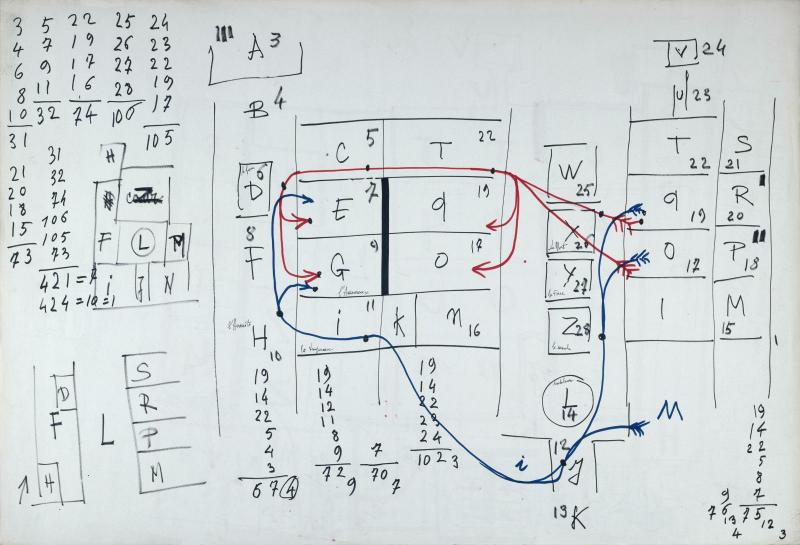 3 5 22 25 24
4 7 19 26 23
6 9 17 27 22
8 11 16 28 19
10 32 74 106 17
31 105
21 31
20 32
18 74
15 106
73 105
73
421 = 7
424 = 10 = 1
H
F L M
i J N
A 3
B 4
C 5 T 22
D 6
E 7 q 19
8 F
G 9 O 17
i 11 K n 16
H 10
V 24
U 23
W 25
X 26
Y 27
Z 28
L 14
T 22 S 21
q 19 R 20
O 17 P 18
I M 15
12 J
13 K
i
M
D
F
H
L
S
R
P
M
19
14
22
5
4
3
67 4
19
14
12
11
8
9
72
9
7
70
7
19
14
22
23
24
102 3
19
14
22
5
8
9 7
76 75
13 12
4 3